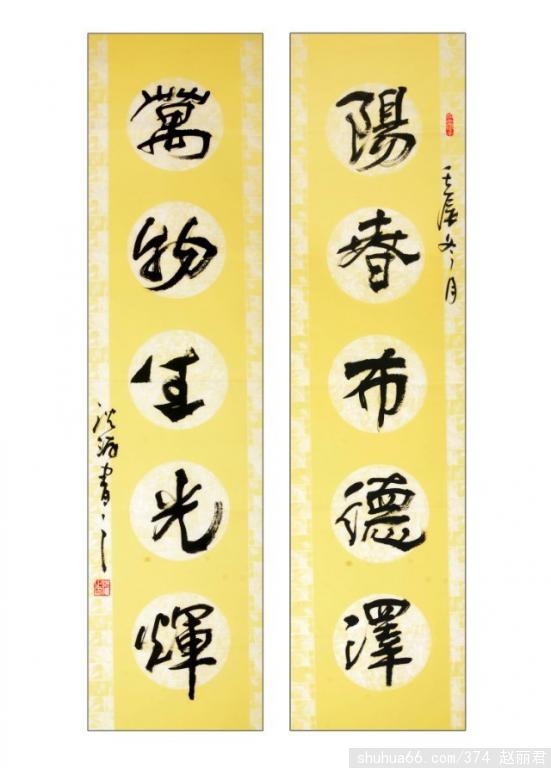 陽春布德澤
壬辰冬月
萬物生光輝
書
shuhua66.com/374 赵丽君